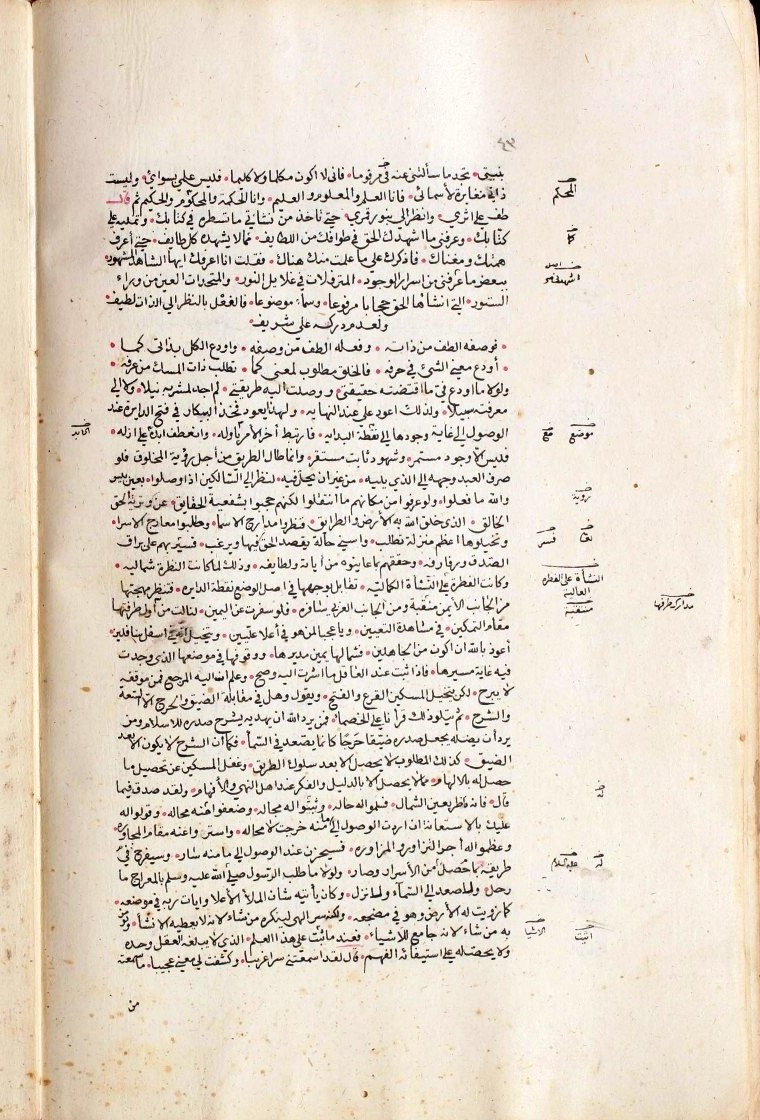 ٤٣
بنيتي تجد ما سألتني عنه في مرقوما فاني لا اكون مكلما ولا كليما فليس علمي بسوائي وليست
ذاتي مغايرة لأسمائي فانا العلم والمعلوم والعليم وانا الحكمة والمحكوم والحكيم ثم قال
طف على اثري وانظر الي بنور قمري حتى تاخذ من نشأتي ما تسطره في كتابك وتمليه على
كتابك وعرفني ما اشهدك الحق في طوافك من اللطايف مما لا يشهده كل طايف حتى أعرف
همتك ومعناك فاذكرك على ما علمت منك هناك فقلت انا اعرفك ايها الشاهد المشهود
ببعض ما عرفني من اسرار الوجود المترفلات في غلايل النور والمتحدات العين من وراء
الستور التي انشاها الحق حجابا مرفوعا وسماء موضوعا فالفعل بالنظر الى الذات لطيف
ولعدم دركه علي شريف
فوصفه الطف من ذاته وفعله الطف من وصفه واودع الكل بذاتي كما
أودع معنى الشئ في حرفه فالخلق مطلوب لمعنى كما نطلب ذات المسك من عرفه
ولولا ما اودع في ما اقتضته حقيقتي ووصلت اليه طريقتي لم اجد لمشربه نيلا ولا الى
معرفته سبيلا ولذلك اعود علي عند النهايه ولهذا يعود فخذ البيكار في فتح الدايرة عند
الوصول الى غاية وجودها الى نقطة البدايه فارتبط آخر الأمر باوله وانعطف ابده على ازله
فليس الا وجود مستمر وشهود ثابت مستقر وانما طال الطريق من أجل رؤية المخلوق فلو
صرف العبد وجهه الى الذي يليه من غير ان يحل فيه لنظر الى السالكين اذا وصلوا بعين بئس
والله ما فعلوا ولو عرفوا من مكانهم ما انتقلوا لكنهم حجبوا بشفعية الحقايق عن وترية الحق
الخالق الذي خلق الله به الأرض والطرايق فنظروا مدارج الأسما وطلبوا معارج الاسرا
وتخيلوها اعظم منزلة تطلب واسنى حالة يقصد الحق فيها ويرغب فسير بهم على براق
الصدق ورفارفه وحققهم بما عاينوه من آياته ولطايفه وذلك لما كانت النظرة شماليه
وكانت الفطرة على النشأة الكماليه تقابل بوجهها في اصل الوضع نقطة الدايره فتنظر مهجتها
من الجانب الأيمن منقبة ومن الجانب الغربي سافره فلو سفرت عن اليمين لنالت من أول طرفتها
مقام التمكين في مشاهدة التعيين ويا عجبا لمن هو في أعلا عليين وتخيل انه في اسفل سافلين
أعوذ بالله ان اكون من الجاهلين فشمالها يمين مديرها ووقوفها في موضعها الذي وجدت
فيه غاية مسيرها فاذا ثبت عند العاقل ما اشرت اليه وصح وعلم ان اليه المرجع فمن موقفه
لا يبرح لكن يتخيل المسكين القرع والفتح ويقول وهل في مقابلة الضيق والحرج الا السعة
والشرح ثم يتلو ذلك قرآنا على الخصما فمن يرد الله ان يهديه يشرح صدره للاسلام ومن
يرد أن يضله يجعل صدره ضيقا حرجا كانما يصعد في السما فكما أن الشرح لا يكون الا بعد
الضيق كذلك المطلوب لا يحصل الا بعد سلوك الطريق وغفل المسكين عن تحصيل ما
حصل له بالالهام مما لا يحصل الا بالدليل والفكر عند اهل النهى والأفهام ولقد صدق فيما
قال فانه ناظر بعين الشمال فسلموا له حاله وثبتوا له محاله وضعفوا منه محاله وقولوا له
عليك بالاستعانة ان اردت الوصول الى ما منه خرجت لا محاله واستروا عنه مقام المجاوره
وعظموا له أجر التزاور والمزاوره فسيحزن عند الوصول الى ما منه سار وسيفرح في
طريقه بما حصل من الأسرار وصار ولولا ما طلب الرسول صلى الله عليه وسلم بالمعراج ما
رحل ولما صعد الى السماء ولما نزل وكان يأتيه شان الملأ الأعلا وآيات ربه في موضعه
كما زويت له الأرض وهو في مضجعه ولكنه سر الهي لينكره من شاء لانه لا يعطيه الانشا ويؤمن
به من شاء لانه جامع للأشياء فعندما ثبت على هذا العلم الذي لا يبلغه العقل وحده
ولا يحصله على استيفائه الفهم قال لقد اسمعتني سرا غريبا وكشفت لي معنى عجيبا ما سمعته
من
المحكم
كل
رؤية
موضع
مع
النشأة على الفطرة
منتقبة
له
له عليه السلام
اثبت
الاشيا